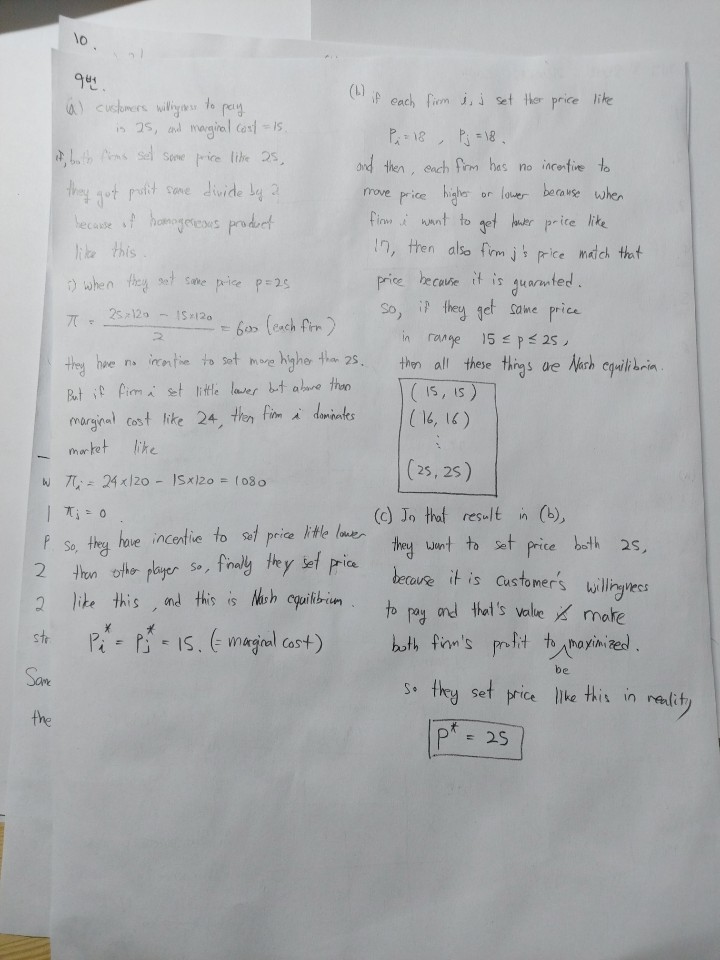 10.
9번.
(a) customers willigness to pay
is 25, and marginal cost = 15.
if, both firms set same price like 25,
they got profit same divide by 2
because of homogeneous product
like this.
i) when they set same price p=25
π = (25×120 - 15×120) / 2 = 600 (each firm)
they have no incentive to set more higher than 25.
But if firm i set little lower but above than
marginal cost like 24, then firm i dominates
market like
πi = 24×120 - 15×120 = 1080
πj = 0
So, they have incentive to set price little lower
than other player so, finally they set price
like this, and this is Nash equilibrium.
Pi* = Pj* = 15. (= marginal cost)
w
1
P
2
2
str
Same
the
(b) if each firm i, j set ther price like
Pi = 18, Pj = 18.
and then, each firm has no incentive to
move price higher or lower because when
firm i want to get lower price like
17, then also firm j's price match that
price because it is guaranted.
So, if they get same price
in range 15 ≤ p ≤ 25,
then all these things are Nash equilibria.
(15, 15)
(16, 16)
⋮
(25, 25)
(c) In that result in (b),
they want to set price both 25,
because it is customer's willigness
to pay and that's value make
both firm's profit to be maximized.
So they set price like this in reality
P* = 25